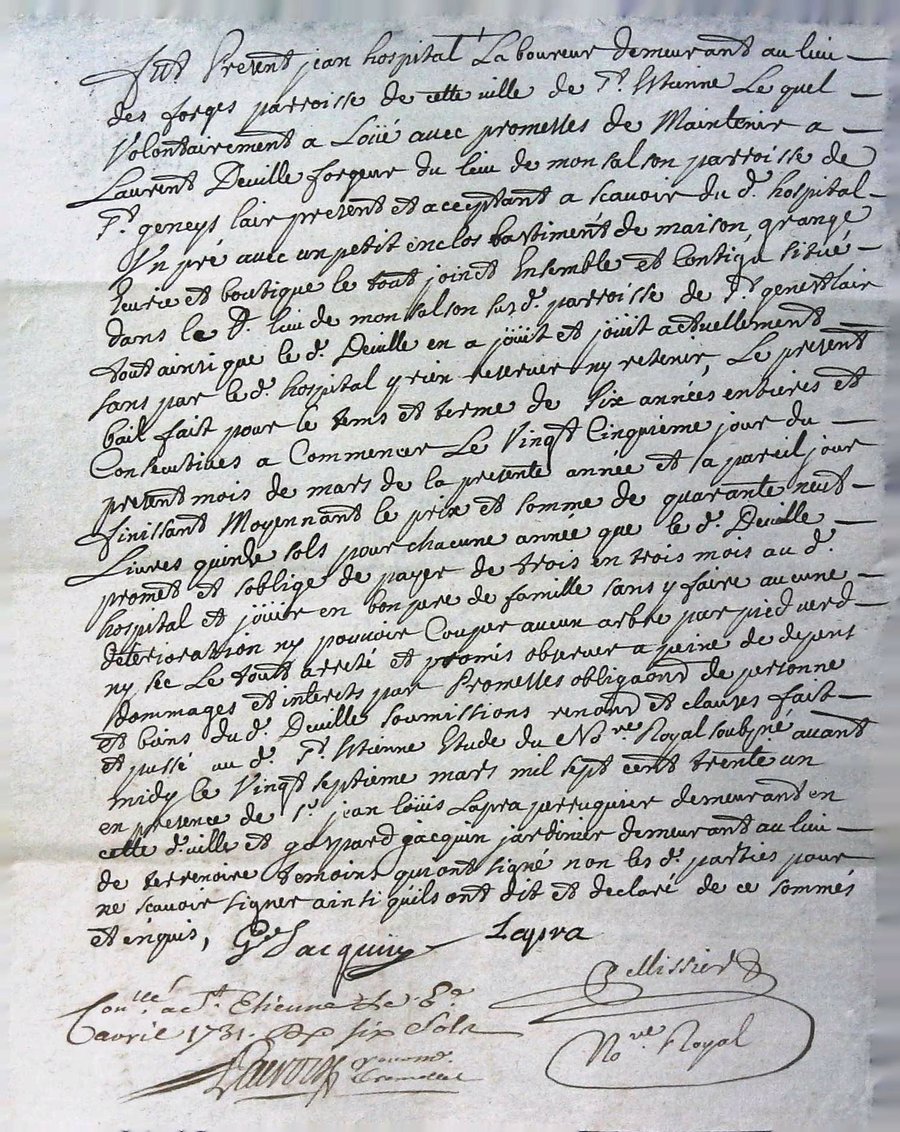 Fut Present jean hospital Laboureur demeurant au lieu
des forges parroisse de cette ville de St. Etienne Lequel
Volontairement a Loüé avec promesses de Maintenir a
Laurent Deville forgeur du lieu de monsalson parroisse de
St. geneys lair present et acceptant a scavoir du d. hospital
Un pré avec un petit enclos bastiment de maison, grange
Ecurie et boutique le tout joinct Ensemble et Contigu situé
dans le d. lieu de monsalson susd. parroisse de St. genestlair
tout ainsi que le d. Deville en a joüit et joüit actuellement
sans par le d. hospital y rien reserver ny retenir, Le present
bail fait pour le tems et terme de Six années entieres et
Consecutives a Commencer Le Vingt Cinquieme jour du
present mois de mars de la presente année et a pareil jour
finissant Moyennant le prix et somme de quarante neuf
Livres quinse sols pour chacune année que le d. Deville
promet et soblige de payer de trois en trois mois au d.
hospital et joüir en bon pere de famille sans y faire aucune
deterioration ny pouvoir Couper aucun arbre par pied verd
ny sec Le tout arreté et promis observer a peine de depens
dommages et interets par Promesses obligaond de personne
et biens du d. Deville soumissions renond et clauses fait
et passé au d. St. Etienne Etude du Nore Royal soubsne avant
midy le Vingt septieme mars mil sept cent trente un
en presence de sr. jean loüis Lapra perruquier demeurant en
cette d. ville et gaspard jacquin jardinier demeurant au lieu
de terrenoire temoins qui ont signé non les d. parties pour
ne scavoir signer ainsi quils ont dit et declaré de ce sommés
et enquis,
Gd Jacquin Lapra
Pellissier
Nore Royal
Conllé a St. Etienne le 8e
avril 1731. Rx six sols